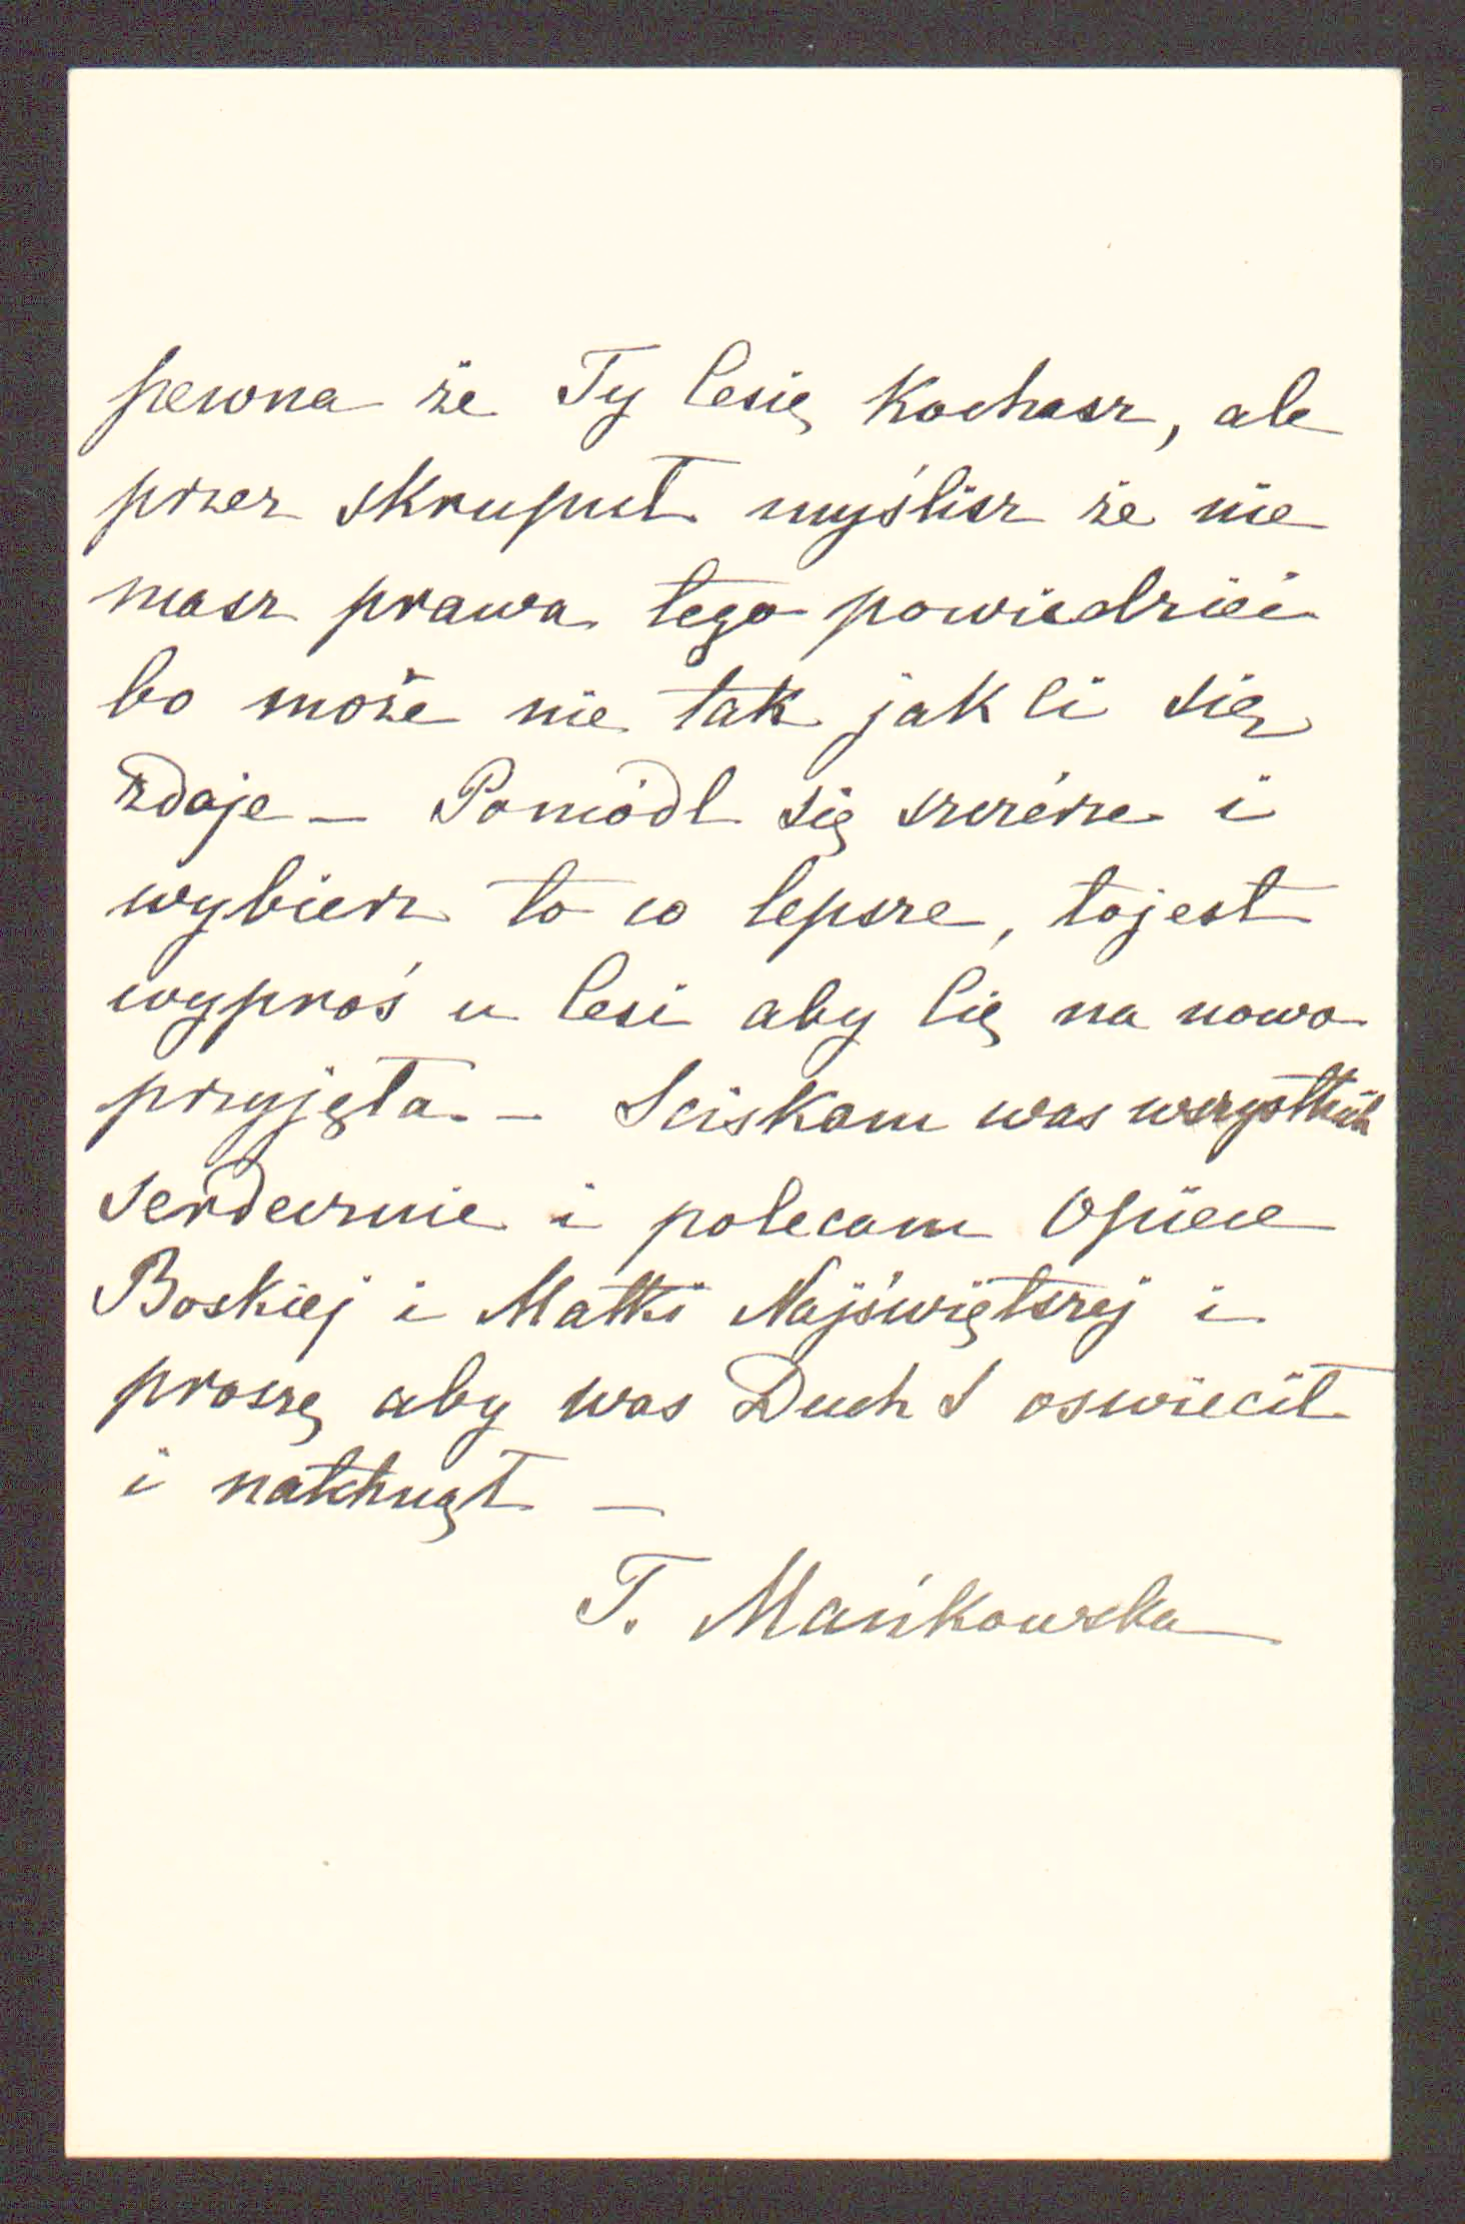 pewna że Ty Cesię Kochasz, ale
przez skrupuł myślisz że nie
masz prawa tego powiedzieć
bo może nie tak jak Ci się
zdaje – Pomódl się szczérze i
wybierz to co lepsze, tojest
wyproś u Cesi aby Cię na nowo
przyjęła. – Sciskam was wszystkich
serdecznie i polecam Opiece
Boskiej i Matki Najświętszej i
proszę aby was Duch S oswiecił
i natchnął –
T. Mańkowska